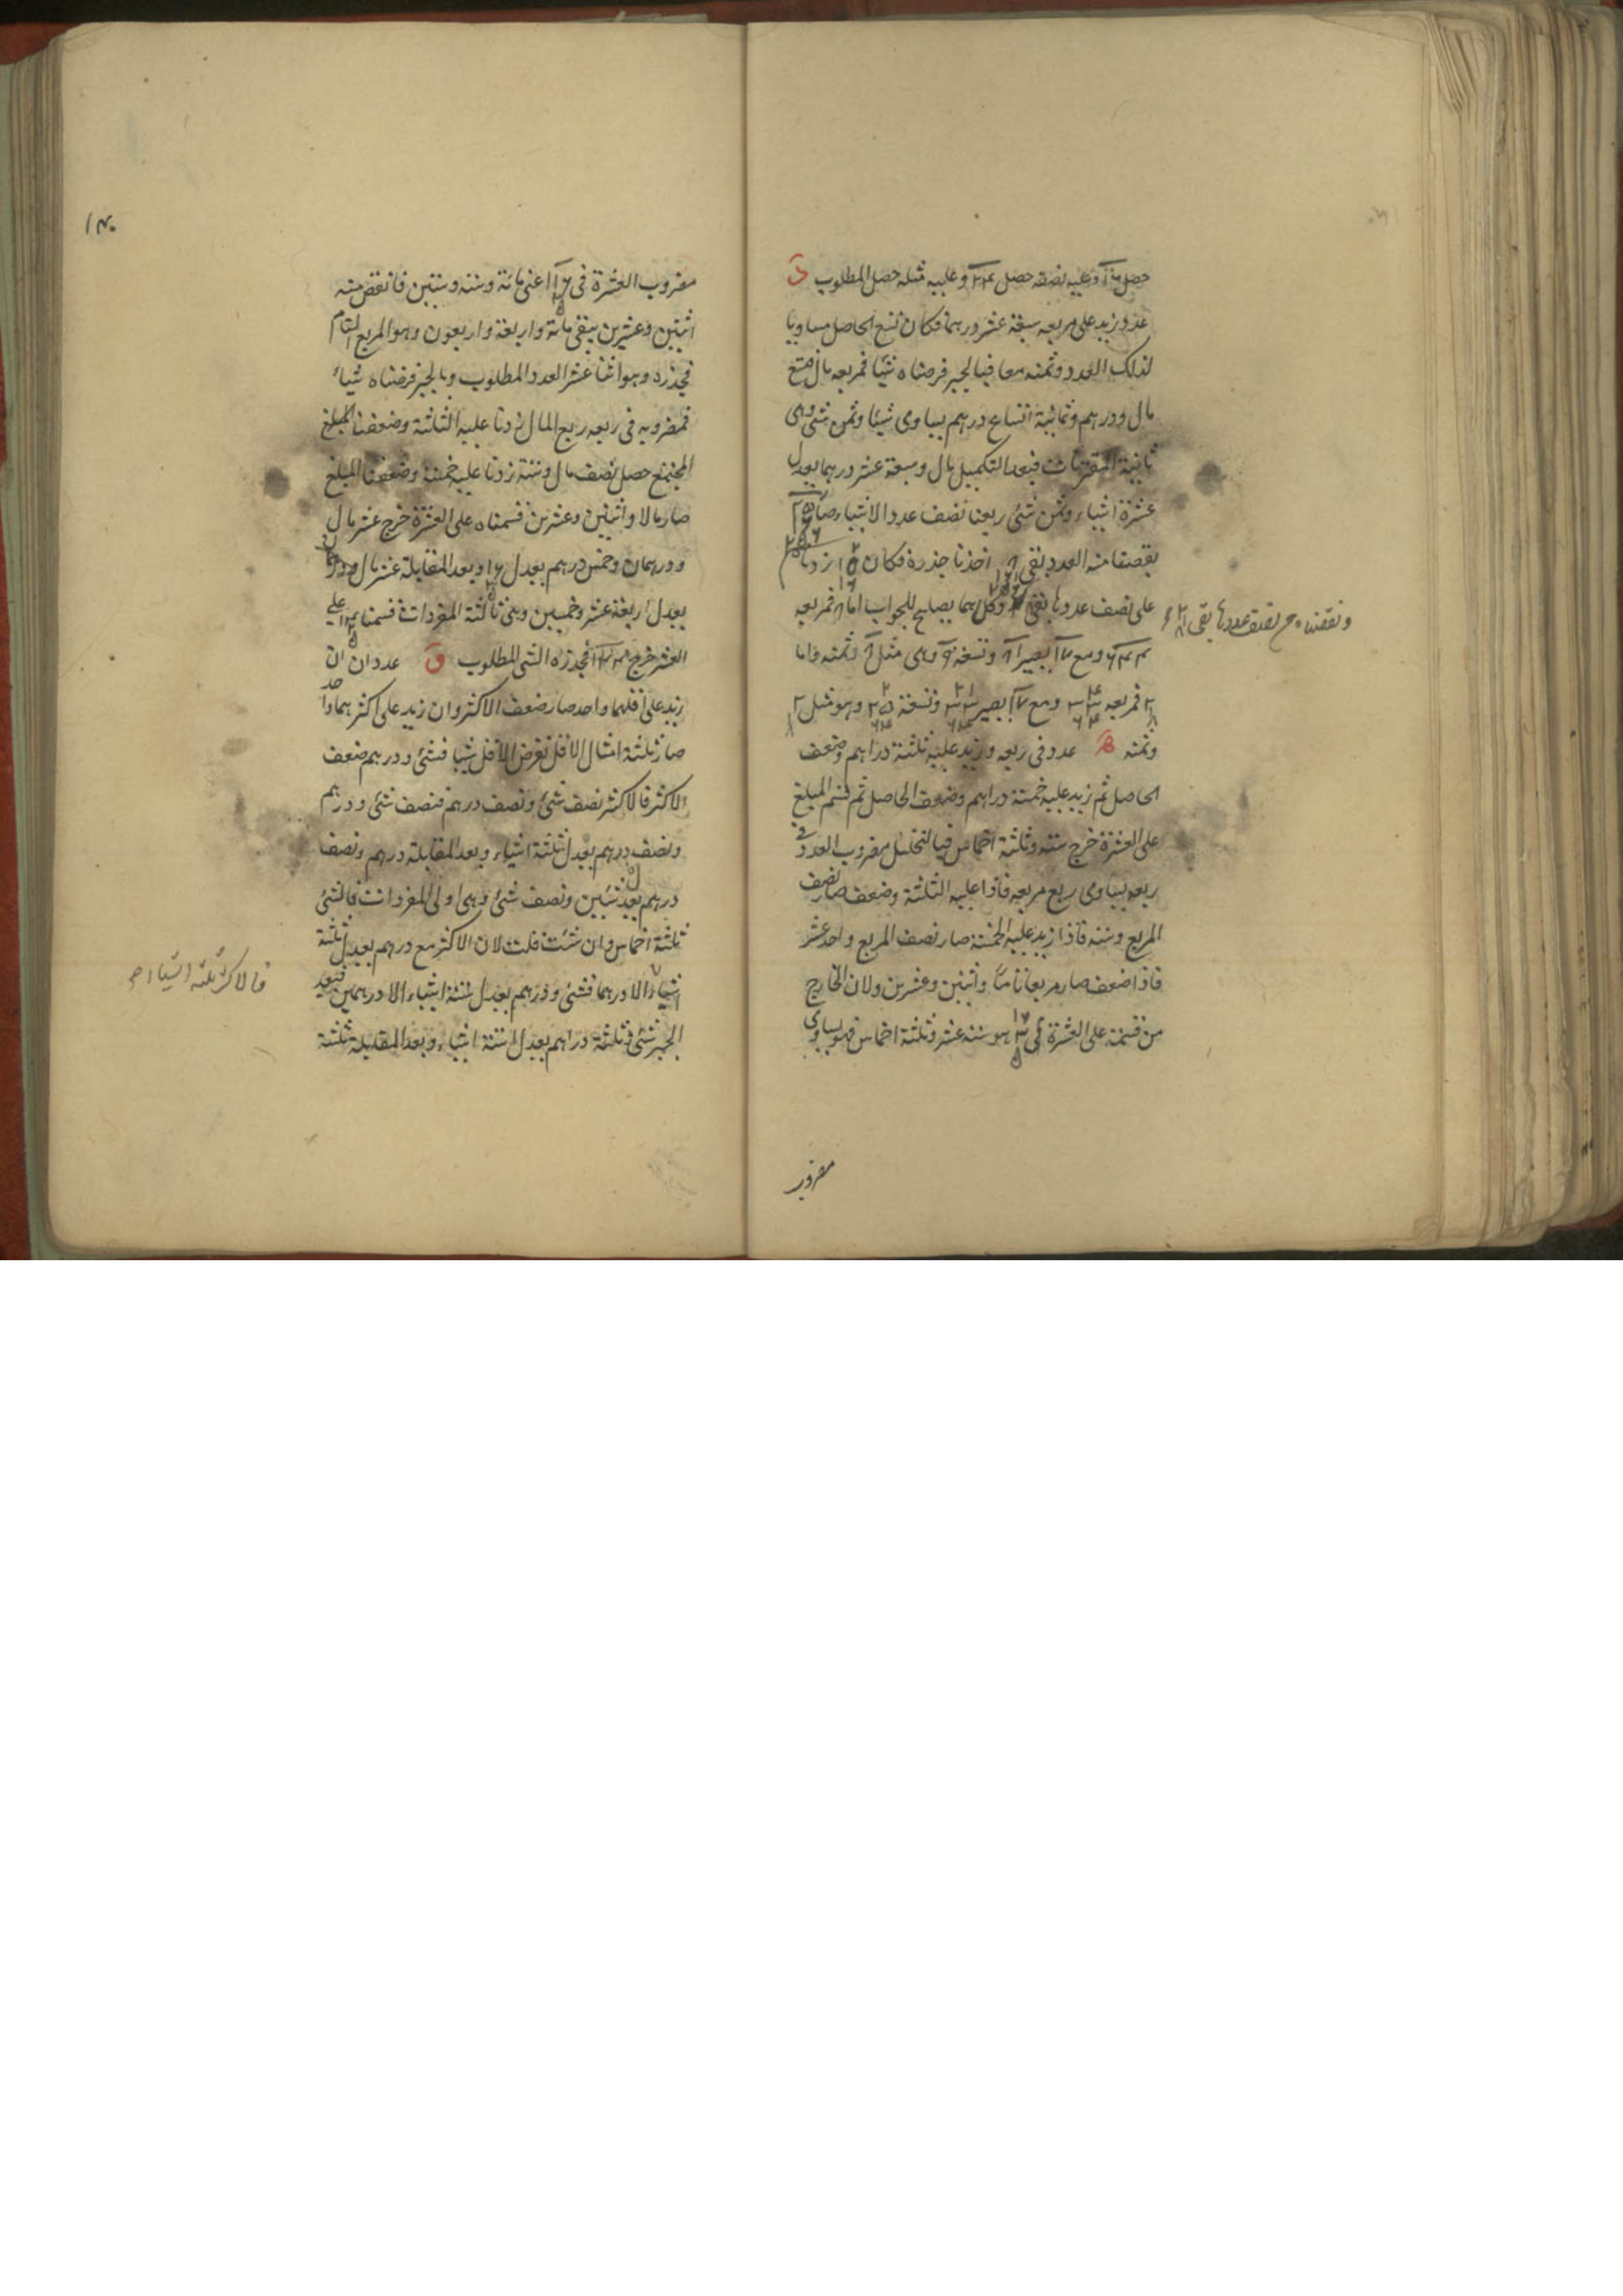 حصل ١٦ وعليه نصفه حصل ٢٤ وعليه مثله حصل المطلوب
عدد زيد على مربعه سبعة عشر درهما فكان تسع الحاصل مساويا
لذلك العدد وثمنه معا فبالجبر فرضناه شيئا فمربعه مال فتسع
مال ودرهم وثمانية اتساع درهم يساوى شيئا وثمن شئ وهى
ثانية المقترنات فبعد التكميل مال وسبعة عشر درهما يعدل
عشرة اشياء وثمن شئ ربعنا نصف عدد الاشياء صار
نقصنا منه العدد بقى اخذنا جذره فكان زدناه
على نصف عددها بقى وكل هما يصلح للجواب اما فمربعه
ونقصناه من نصف عددها بقى
ومع ١٧ يصير وتسعة ٩ وهى مثل ٨ وثمنه واما
فمربعه ومع ١٧ يصير وتسعة وهو مثل
وثمنه عدد فى ربعه وزيد عليه ثلثة دراهم وضعف
الحاصل ثم زيد عليه خمسة دراهم وضعف الحاصل ثم قسم المبلغ
على العشرة خرج ستة وثلثة اخماس فبالتحليل مضروب العدد فى
ربعه يساوى ربع مربعه فاذا عليه الثلثة وضعف صار نصف
المربع وستة فاذا زيد عليه الخمسة صار نصف المربع واحد عشر
فاذا ضعف صار مربعا تاما واثنين وعشرين ولان الخارج
من قسمة على العشرة هو ستة عشر وثلثة اخماس فهو يساوى
مضروب
١٤٠
مضروب العشرة فى اعنى مائة وستة وستين فانقص منه
اثنين وعشرين يبقى مائة واربعة واربعون وهو المربع التام
فجذره وهو اثنا عشر العدد المطلوب وبالجبر فرضناه شيئا
فمضروبه فى ربعه ربع المال زدنا عليه الثلثة وضعفنا المبلغ
المجتمع حصل نصف مال وستة زدنا عليه خمسة وضعفنا المبلغ
صار مالا واثنين وعشرين قسمناه على العشرة خرج عشر مال
ودرهمان وخمس درهم يعدل وبعد المقابلة عشر مال
يعدل اربعة عشر وخمسين وهى ثالثة المفردات قسمنا على
العشر خرج ١٤٤ فجذره الشئ المطلوب عددان ان
زيد على اقلهما واحد صار ضعف الاكثر وان زيد على اكثرهما واحد
صار ثلثة امثال الاقل نفرض الاقل شيا فشئ ودرهم ضعف
الاكثر فالاكثر نصف شئ ونصف درهم فنصف شئ ودرهم
ونصف درهم يعدل ثلثة اشياء وبعد المقابلة درهم ونصف
درهم يعدل شيئين ونصف شئ وهى اولى المفردات فالشئ
ثلثة اخماس وان شئت قلت لان الاكثر مع درهم يعدل ثلثة
فالاكثر ثلثة اشياء
اشياء الا درهما فشئ ودرهم يعدل ستة اشياء الا درهمين فبعد
الجبر شئ وثلثة دراهم يعدل ستة اشياء وبعد المقابلة ثلثة